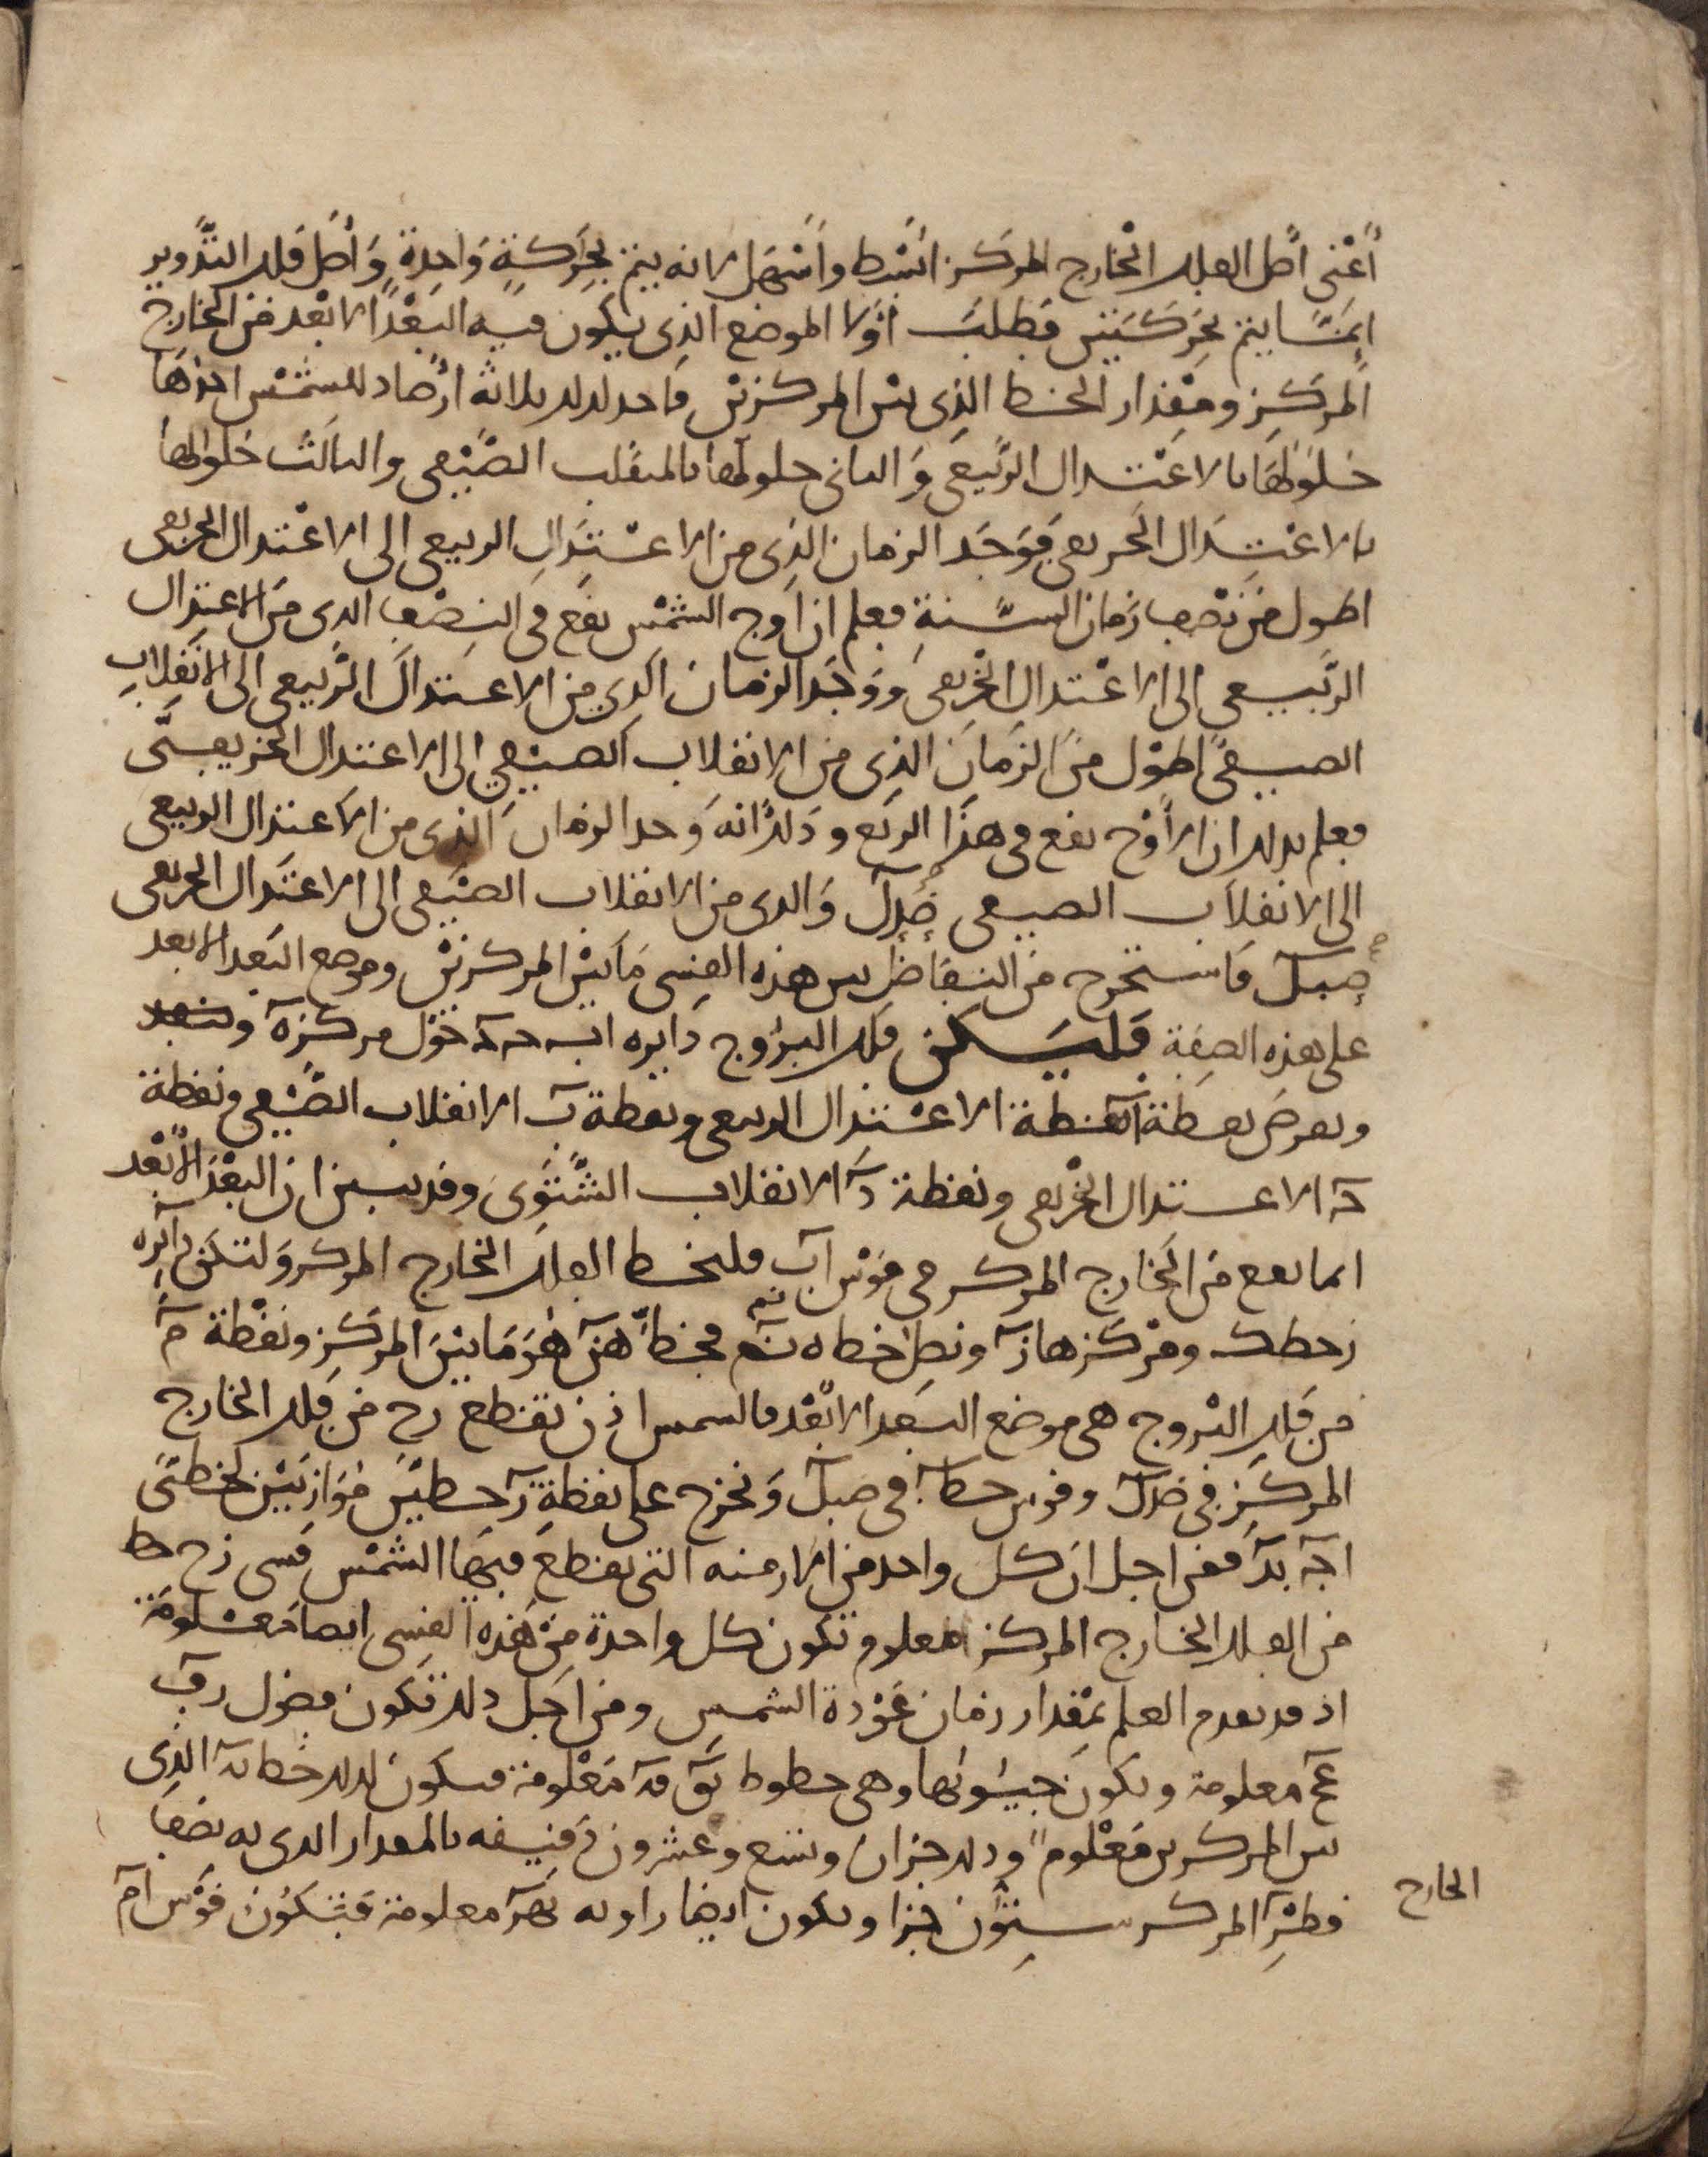 أعني أصل الفلك الخارج المركز ابسط وأسهل لانه يتم بحركة واحدة وأصل فلك التدوير
إنما يتم بحركتين فطلب أولا الموضع الذي يكون فيه البعد الابعد من الخارج
المركز ومقدار الخط الذي بين المركزين فاخذ لذلك ثلاثة ارصاد للشمس احدها
حلولها بالاعتدال الربيعي والثاني حلولها بالمنقلب الصيفي والثالث حلولها
بالاعتدال الخريفي فوجد الزمان الذي من الاعتدال الربيعي الى الاعتدال الخريفي
اطول من نصف زمان السنة فعلم ان اوج الشمس يقع في النصف الذي من الاعتدال
الربيعي الى الاعتدال الخريفي ووجد الزمان الذي من الاعتدال الربيعي الى الانقلاب
الصيفي اطول من الزمان الذي من الانقلاب الصيفي الى الاعتدال الخريفي
فعلم بذلك ان الأوج يقع في هذا الربع وذلك انه وجد الزمان الذي من الاعتدال الربيعي
الى الانقلاب الصيفي صدل والذي من الانقلاب الصيفي الى الاعتدال الخريفي
صبل فاستخرج من التفاضل بين هذه القسي ما بين المركزين وموضع البعد الابعد
على هذه الصفة فليكن فلك البروج دايره ابجد حول مركز ه
ونفرض نقطة ا نقطة الاعتدال الربيعي ونقطة ب الانقلاب الصيفي ونقطة
ج الاعتدال الخريفي ونقطة د الانقلاب الشتوي وقد يبين ان البعد الابعد
انما يقع من الخارج المركز في قوس اب فليخط الفلك الخارج المركز ولتكن دايره
زحطك ومركزها ن ونصل خط ه ن م فخط هن هو ما بين المركز ونقطة م
من فلك البروج هي موضع البعد الابعد فالشمس اذن تقطع زح من فلك الخارج
المركز في صدل وقوس حط في صبل ونخرج على نقطة ن خطين موازيين لخطي
اج بد فمن اجل ان كل واحد من الازمنه التي يقطع فيها الشمس قسي زح حط
من الفلك الخارج المركز معلوم تكون كل واحدة من هذه القسي ايضا معلومة
اذ قد تقدم العلم بمقدار زمان عودة الشمس ومن اجل ذلك تكون فضول رف
عح معلومة وتكون جيوبها وهي خطوط نق قه معلومة فيكون لذلك خط نه الذي
بين المركزين معلوم وذلك جزان وتسع وعشرون دقيقه بالمقدار الذي به نصف
قطر المركز ستون جزا وتكون ايضا زاويه نهر معلومة فتكون قوس ام
الخارج